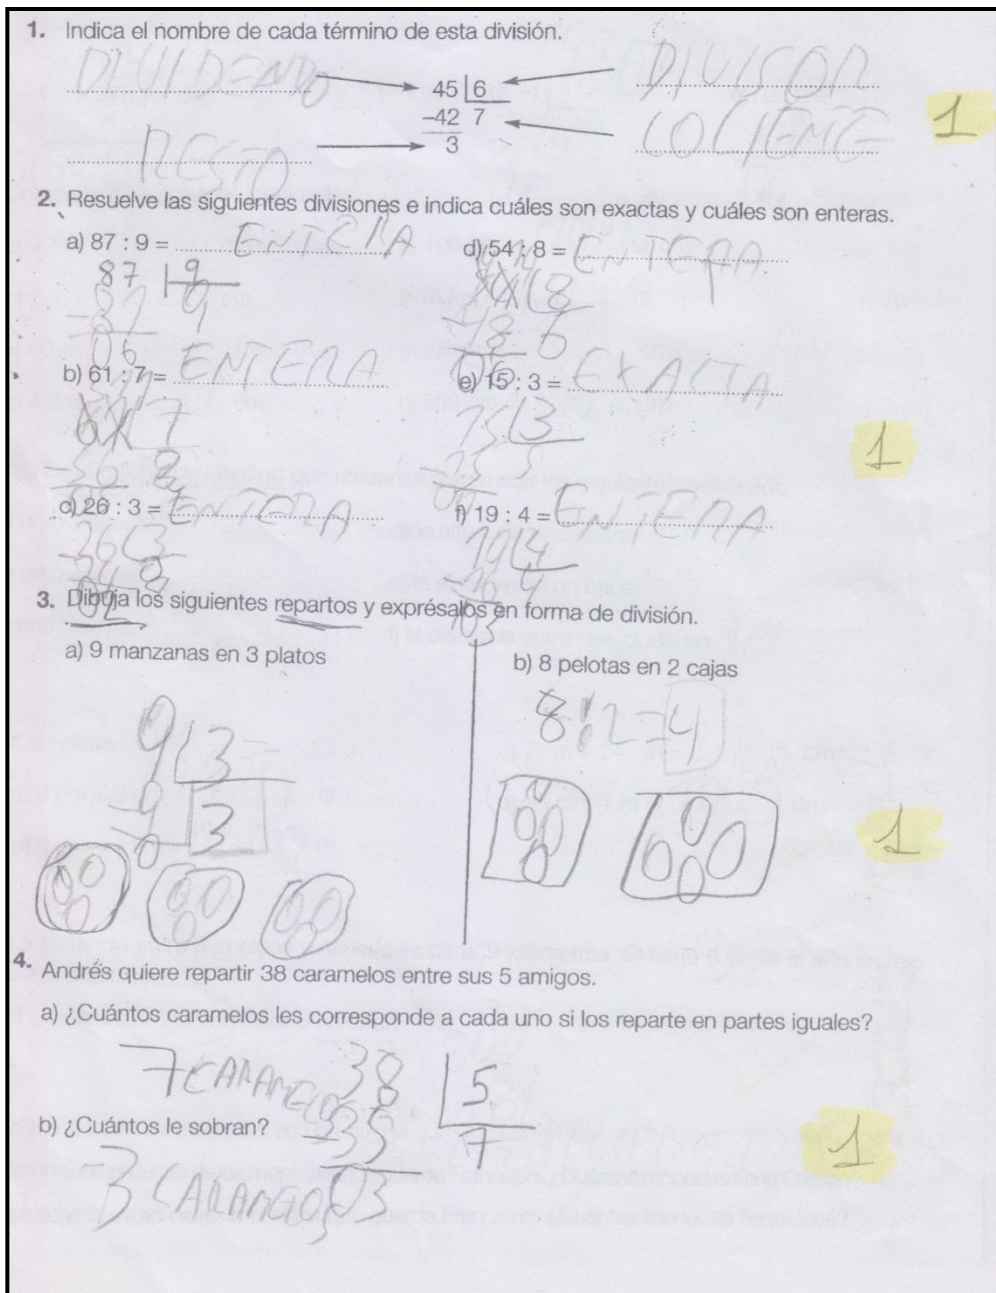 1. Indica el nombre de cada término de esta división.
DIVIDENDO 45 6 DIVISOR
-42 7 COCIEMTE 1
RESTO 3
2. Resuelve las siguientes divisiones e indica cuáles son exactas y cuáles son enteras.
a) 87 : 9 = ENTERA d) 54 : 8 = ENTERA
87 9
9
b) 61 : 7 = ENTERA e) 15 : 3 = EXACTA
61 7 15 3
8 5
1
26 : 3 = ENTERA f) 19 : 4 = ENTERA
26 3 19 4
8
02 03
3. Dibuja los siguientes repartos y exprésalos en forma de división.
a) 9 manzanas en 3 platos b) 8 pelotas en 2 cajas
9 3 8:2=4
-9 3
0 1
4. Andrés quiere repartir 38 caramelos entre sus 5 amigos.
a) ¿Cuántos caramelos les corresponde a cada uno si los reparte en partes iguales?
7 CARAMELOS 38 5
b) ¿Cuántos le sobran? -35 7 1
3 03